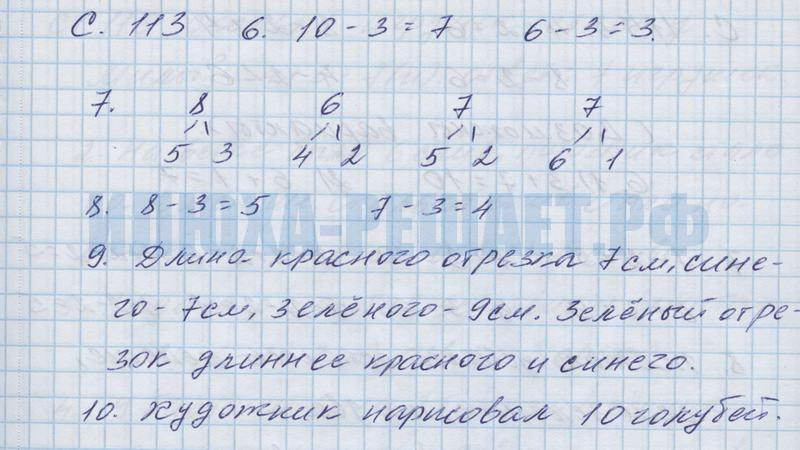 С. 113 6. 10 - 3 = 7 6 - 3 = 3.
7. 8 6 7 7
5 3 4 2 5 2 6 1
8. 8 - 3 = 5 7 - 3 = 4
ИДНЖА-РЕШАЕТ.РФ
9. Длина красного отрезка 7см, сине-
го - 7см, зелёного - 9см. Зелёный отре-
зок длиннее красного и синего.
10. Художник нарисовал 10 голубей.